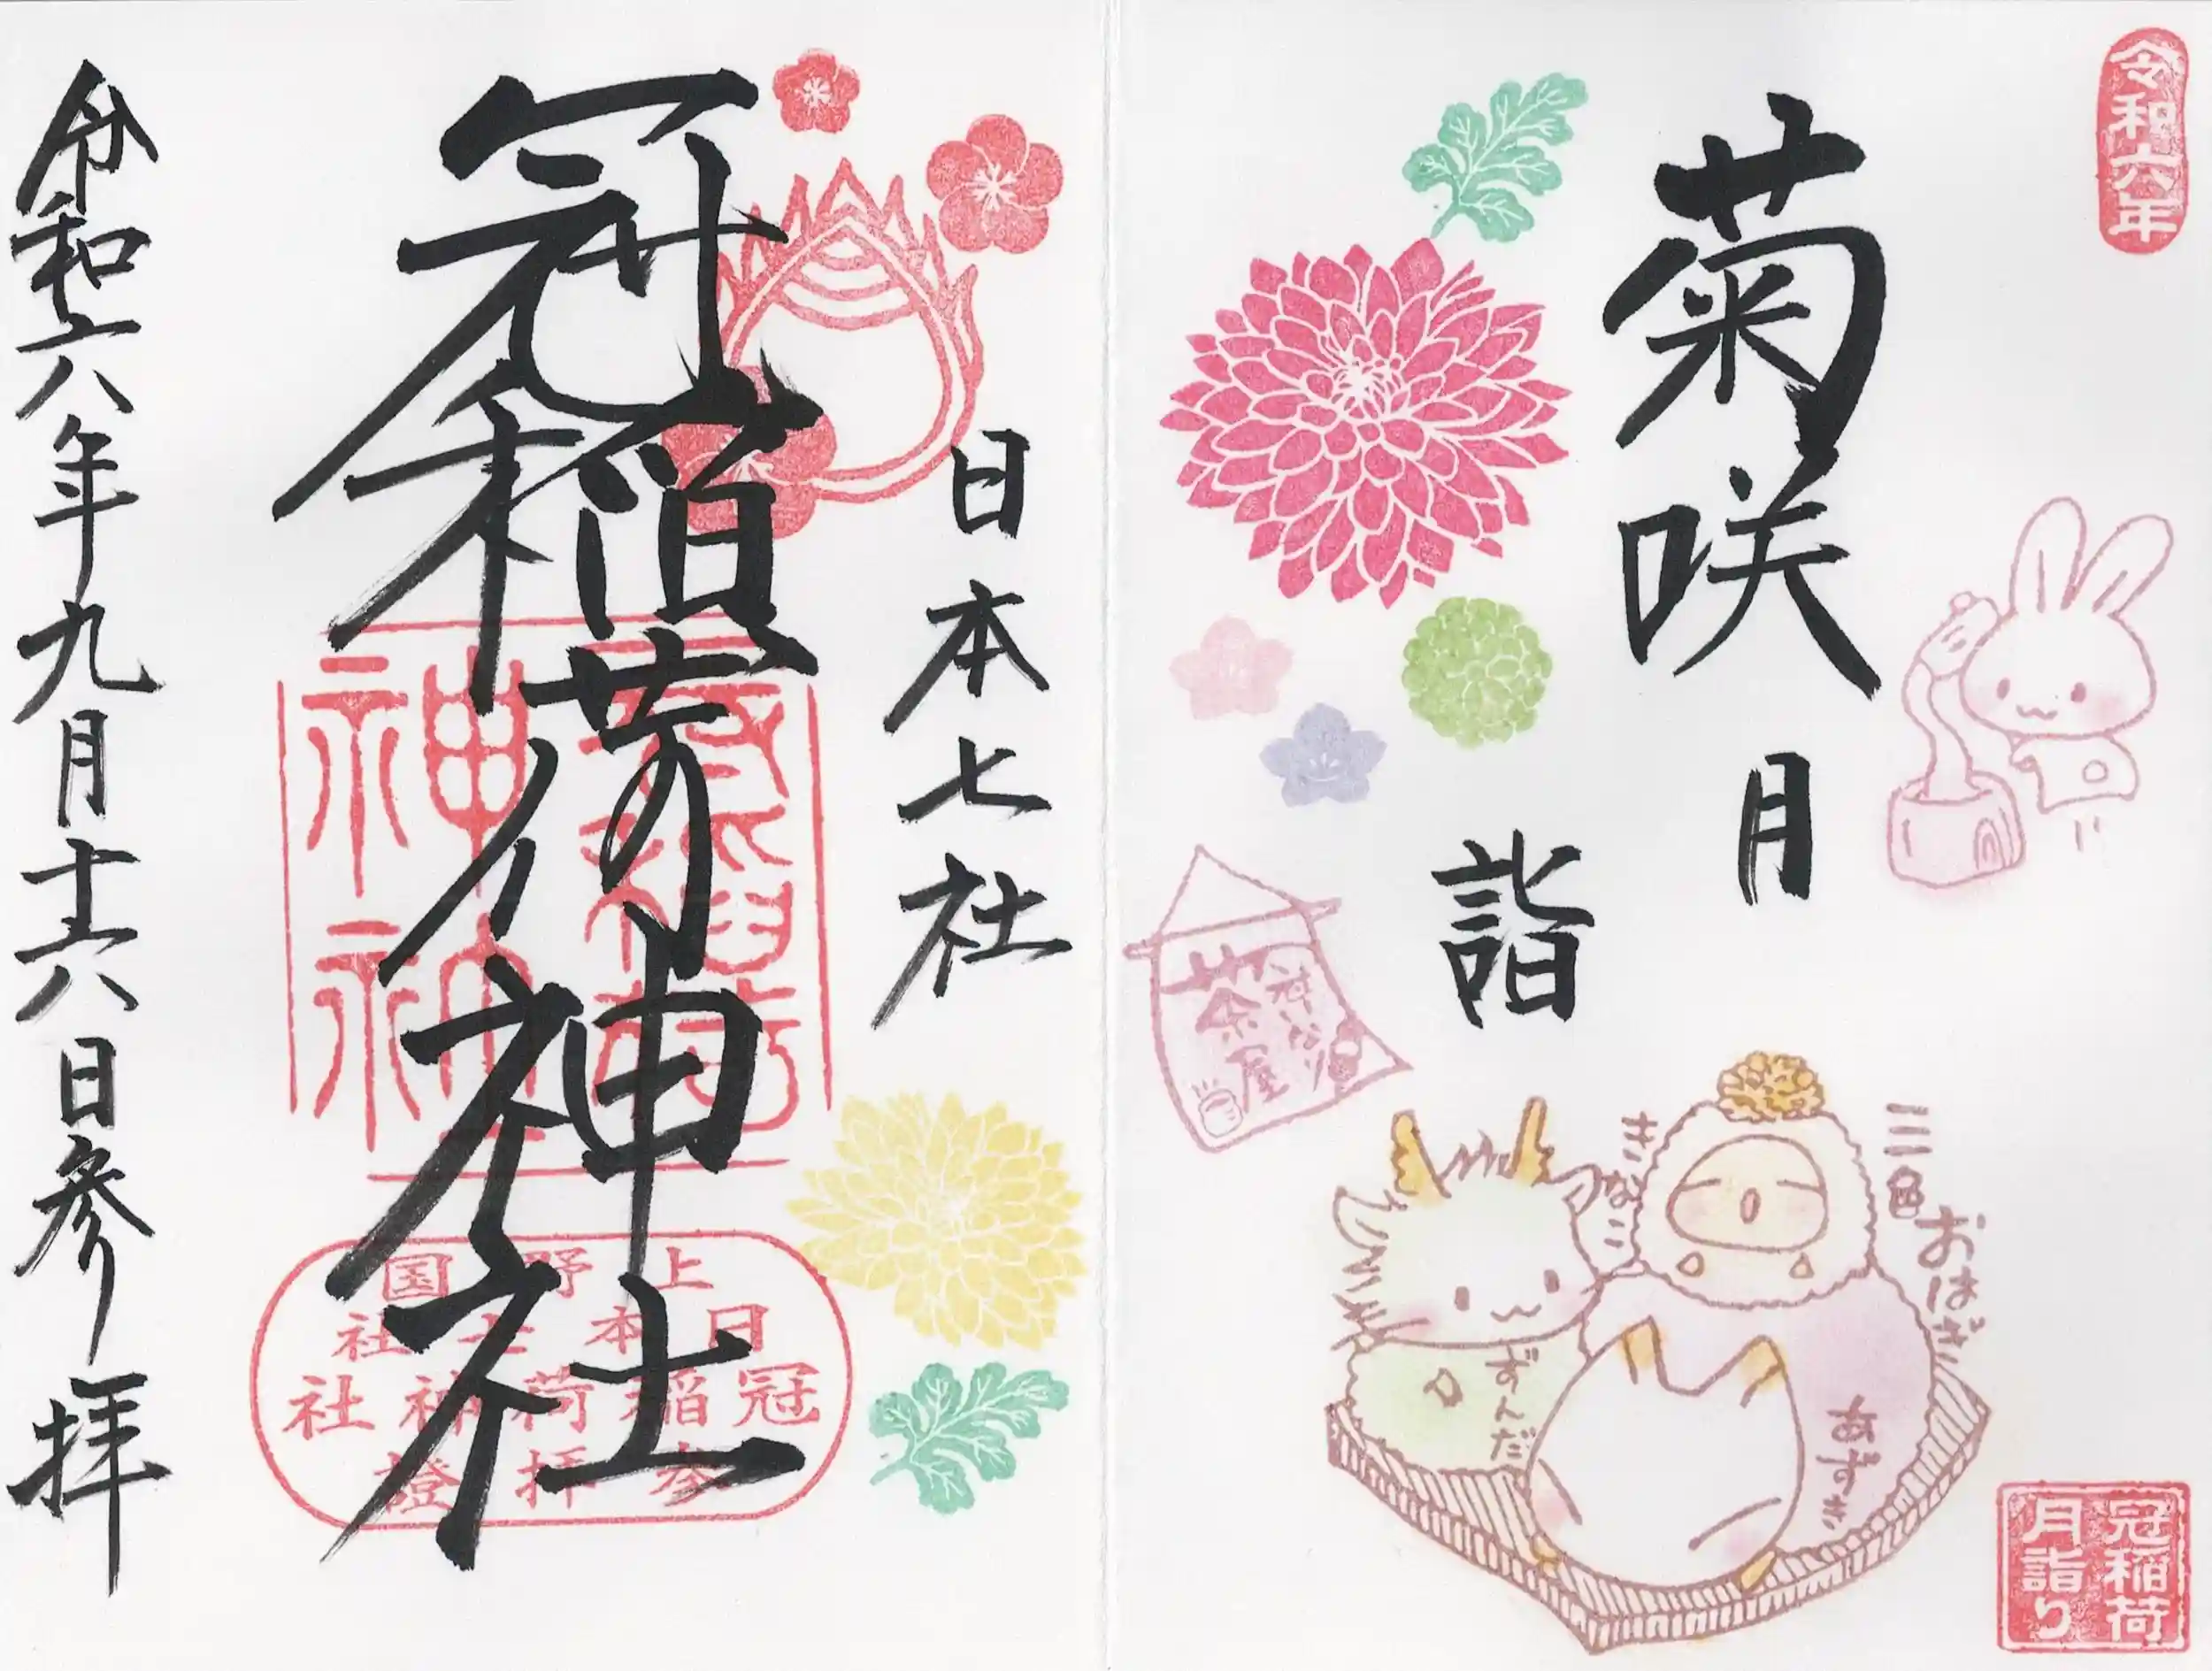 令和六年
菊咲
月
詣
神いなり
茶屋
三色おはぎ
きなこ
ずんだ
あずき
冠稲荷
月詣り
日本七社
冠稲荷神社
上野国
日本七社
冠稲荷神社
参拝證
令和六年九月十六日参拝